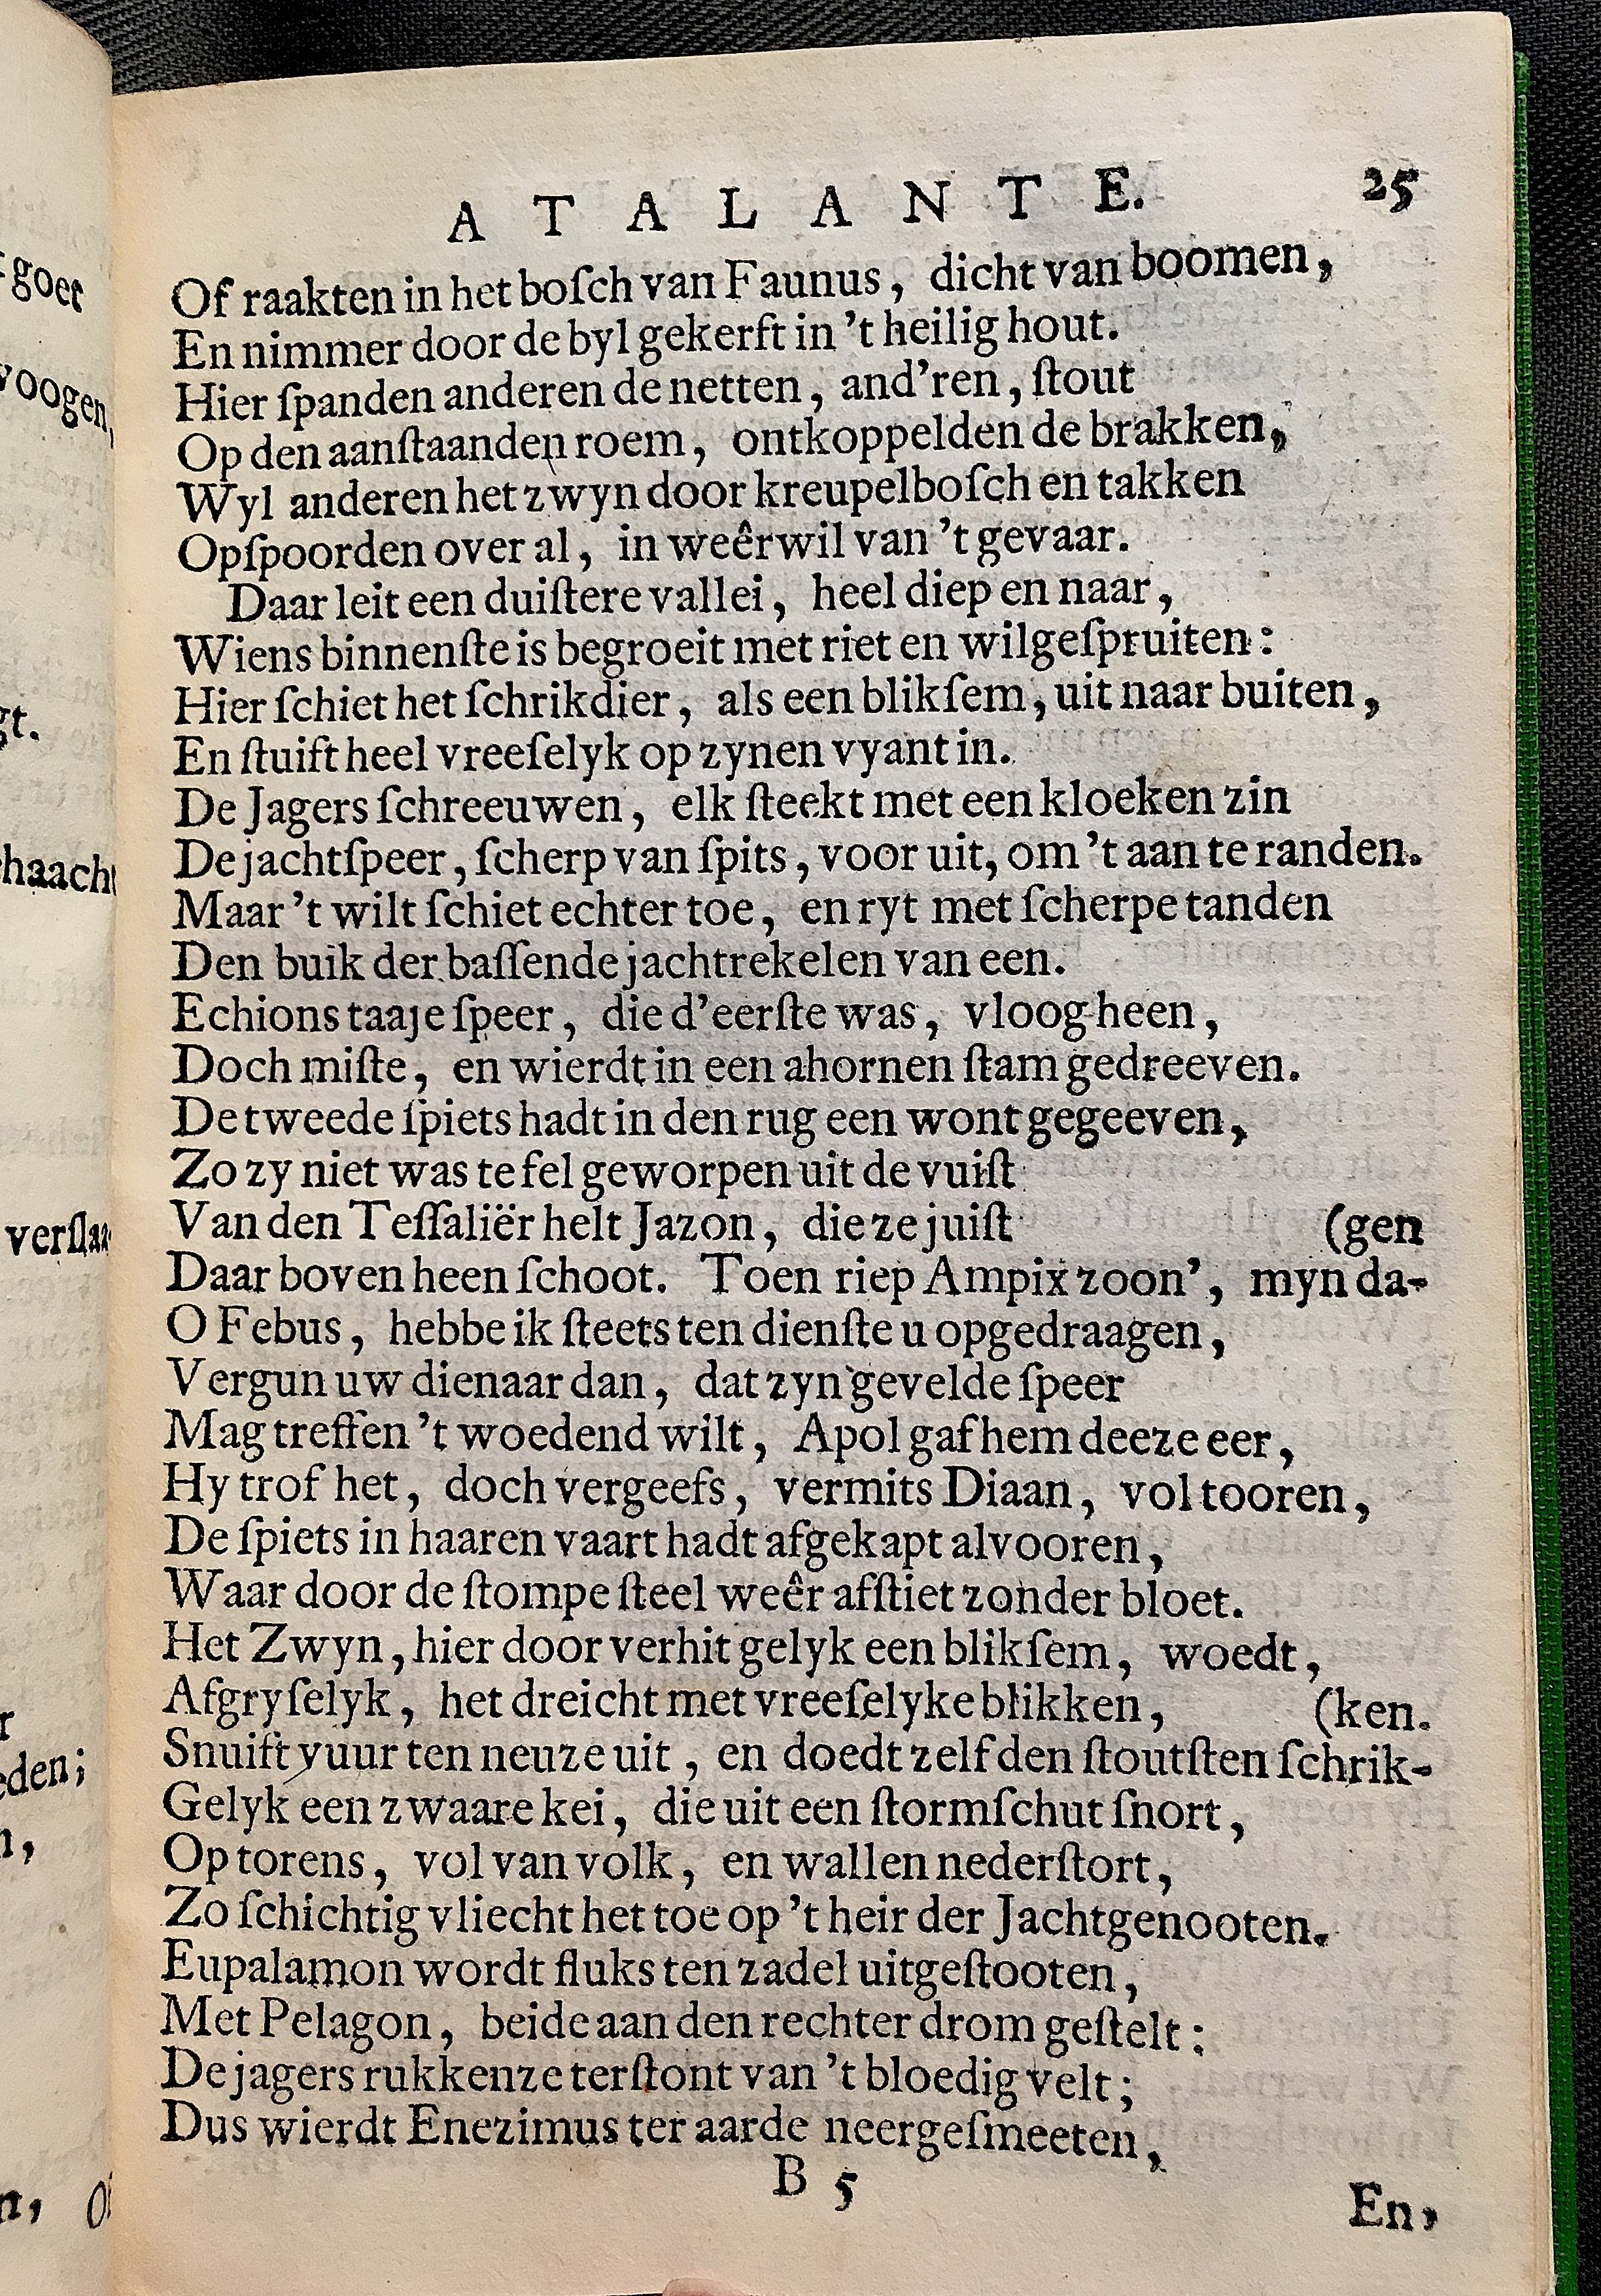 goet
voogen,
gt.
haacht
verslaa-
r
eden;
n,
n,
ATALANTE. 25
Of raakten in het boſch van Faunus, dicht van boomen,
En nimmer door de byl gekerft in 't heilig hout.
Hier ſpanden anderen de netten, and'ren, ſtout
Op den aanſtaanden roem, ontkoppelden de brakken,
Wyl anderen het zwyn door kreupelboſch en takken
Opſpoorden over al, in weêrwil van 't gevaar.
Daar leit een duiſtere vallei, heel diep en naar,
Wiens binnenſte is begroeit met riet en wilgeſpruiten:
Hier ſchiet het ſchrikdier, als een blikſem, uit naar buiten,
En ſtuift heel vreeſelyk op zynen vyant in.
De Jagers ſchreeuwen, elk ſteekt met een kloeken zin
De jachtſpeer, ſcherp van ſpits, voor uit, om 't aan te randen.
Maar 't wilt ſchiet echter toe, en ryt met ſcherpe tanden
Den buik der baſſende jachtrekelen van een.
Echions taaje ſpeer, die d'eerſte was, vloog heen,
Doch miſte, en wierdt in een ahornen ſtam gedreeven.
De tweede ſpiets hadt in den rug een wont gegeeven,
Zo zy niet was te fel geworpen uit de vuiſt
Van den Teſſaliër helt Jazon, die ze juiſt (gen
Daar boven heen ſchoot. Toen riep Ampix zoon', myn da-
O Febus, hebbe ik ſteets ten dienſte u opgedraagen,
Vergun uw dienaar dan, dat zyn gevelde ſpeer
Mag treffen 't woedend wilt, Apol gaf hem deeze eer,
Hy trof het, doch vergeefs, vermits Diaan, vol tooren,
De ſpiets in haaren vaart hadt afgekapt alvooren,
Waar door de ſtompe ſteel weêr afſtiet zonder bloet.
Het Zwyn, hier door verhit gelyk een blikſem, woedt,
Afgryſelyk, het dreicht met vreeſelyke blikken, (ken.
Snuift vuur ten neuze uit, en doedt zelf den ſtoutſten ſchrik-
Gelyk een zwaare kei, die uit een ſtormſchut ſnort,
Op torens, vol van volk, en wallen nederſtort,
Zo ſchichtig vliecht het toe op 't heir der Jachtgenooten.
Eupalamon wordt fluks ten zadel uitgeſtooten,
Met Pelagon, beide aan den rechter drom geſtelt:
De jagers rukkenze terſtont van 't bloedig velt;
Dus wierdt Enezimus ter aarde neergeſmeeten,
B 5
En,